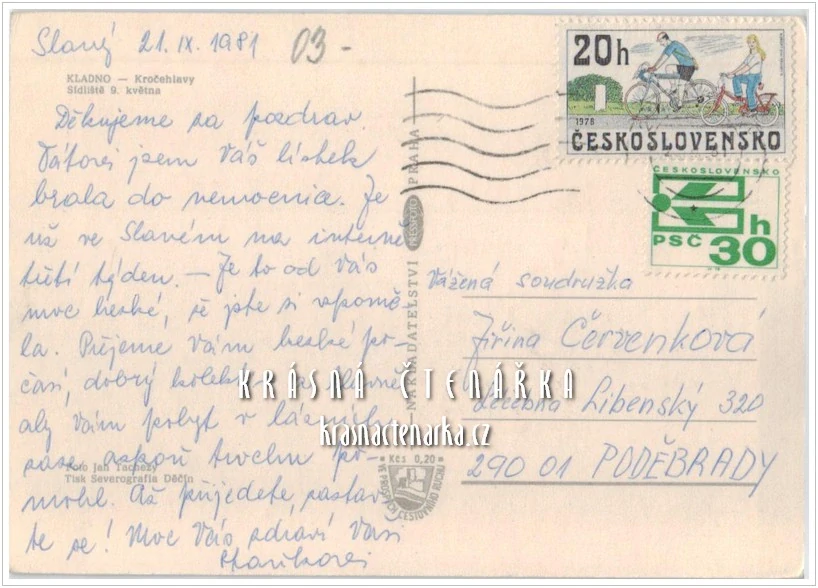 Slaný 21. IX. 1981 03-
KLADNO — Kročehlavy
Sídliště 9. května
Děkujeme za pozdrav.
jsem Váš lístek
brala do nemocnice. Je
už ve Slaném na interně
třetí týden. – Je to od Vás
moc hezké, že jste si vzpomě-
la. Přejeme Vám hezké po-
časí, dobrý a hlavně
aby Vám pobyt v lázních
zase aspoň trochu po-
mohl. Až přijedete, zastav-
te se! Moc Vás zdraví Vaši
Foto Jan Tachezy
Tisk Severografia Děčín
NAKLADATELSTVÍ PRESSFOTO PRAHA
Kčs 0,20
VE PROSPĚCH CESTOVNÍHO RUCHU
20h
1978
ČESKOSLOVENSKO
ČESKOSLOVENSKO
h
PSČ 30
Vážená soudružka
Jiřina Červenková
Léčebna Libenský 320
290 01 PODĚBRADY
KRÁSNÁ ČTENÁŘKA
krasnactenarka.cz